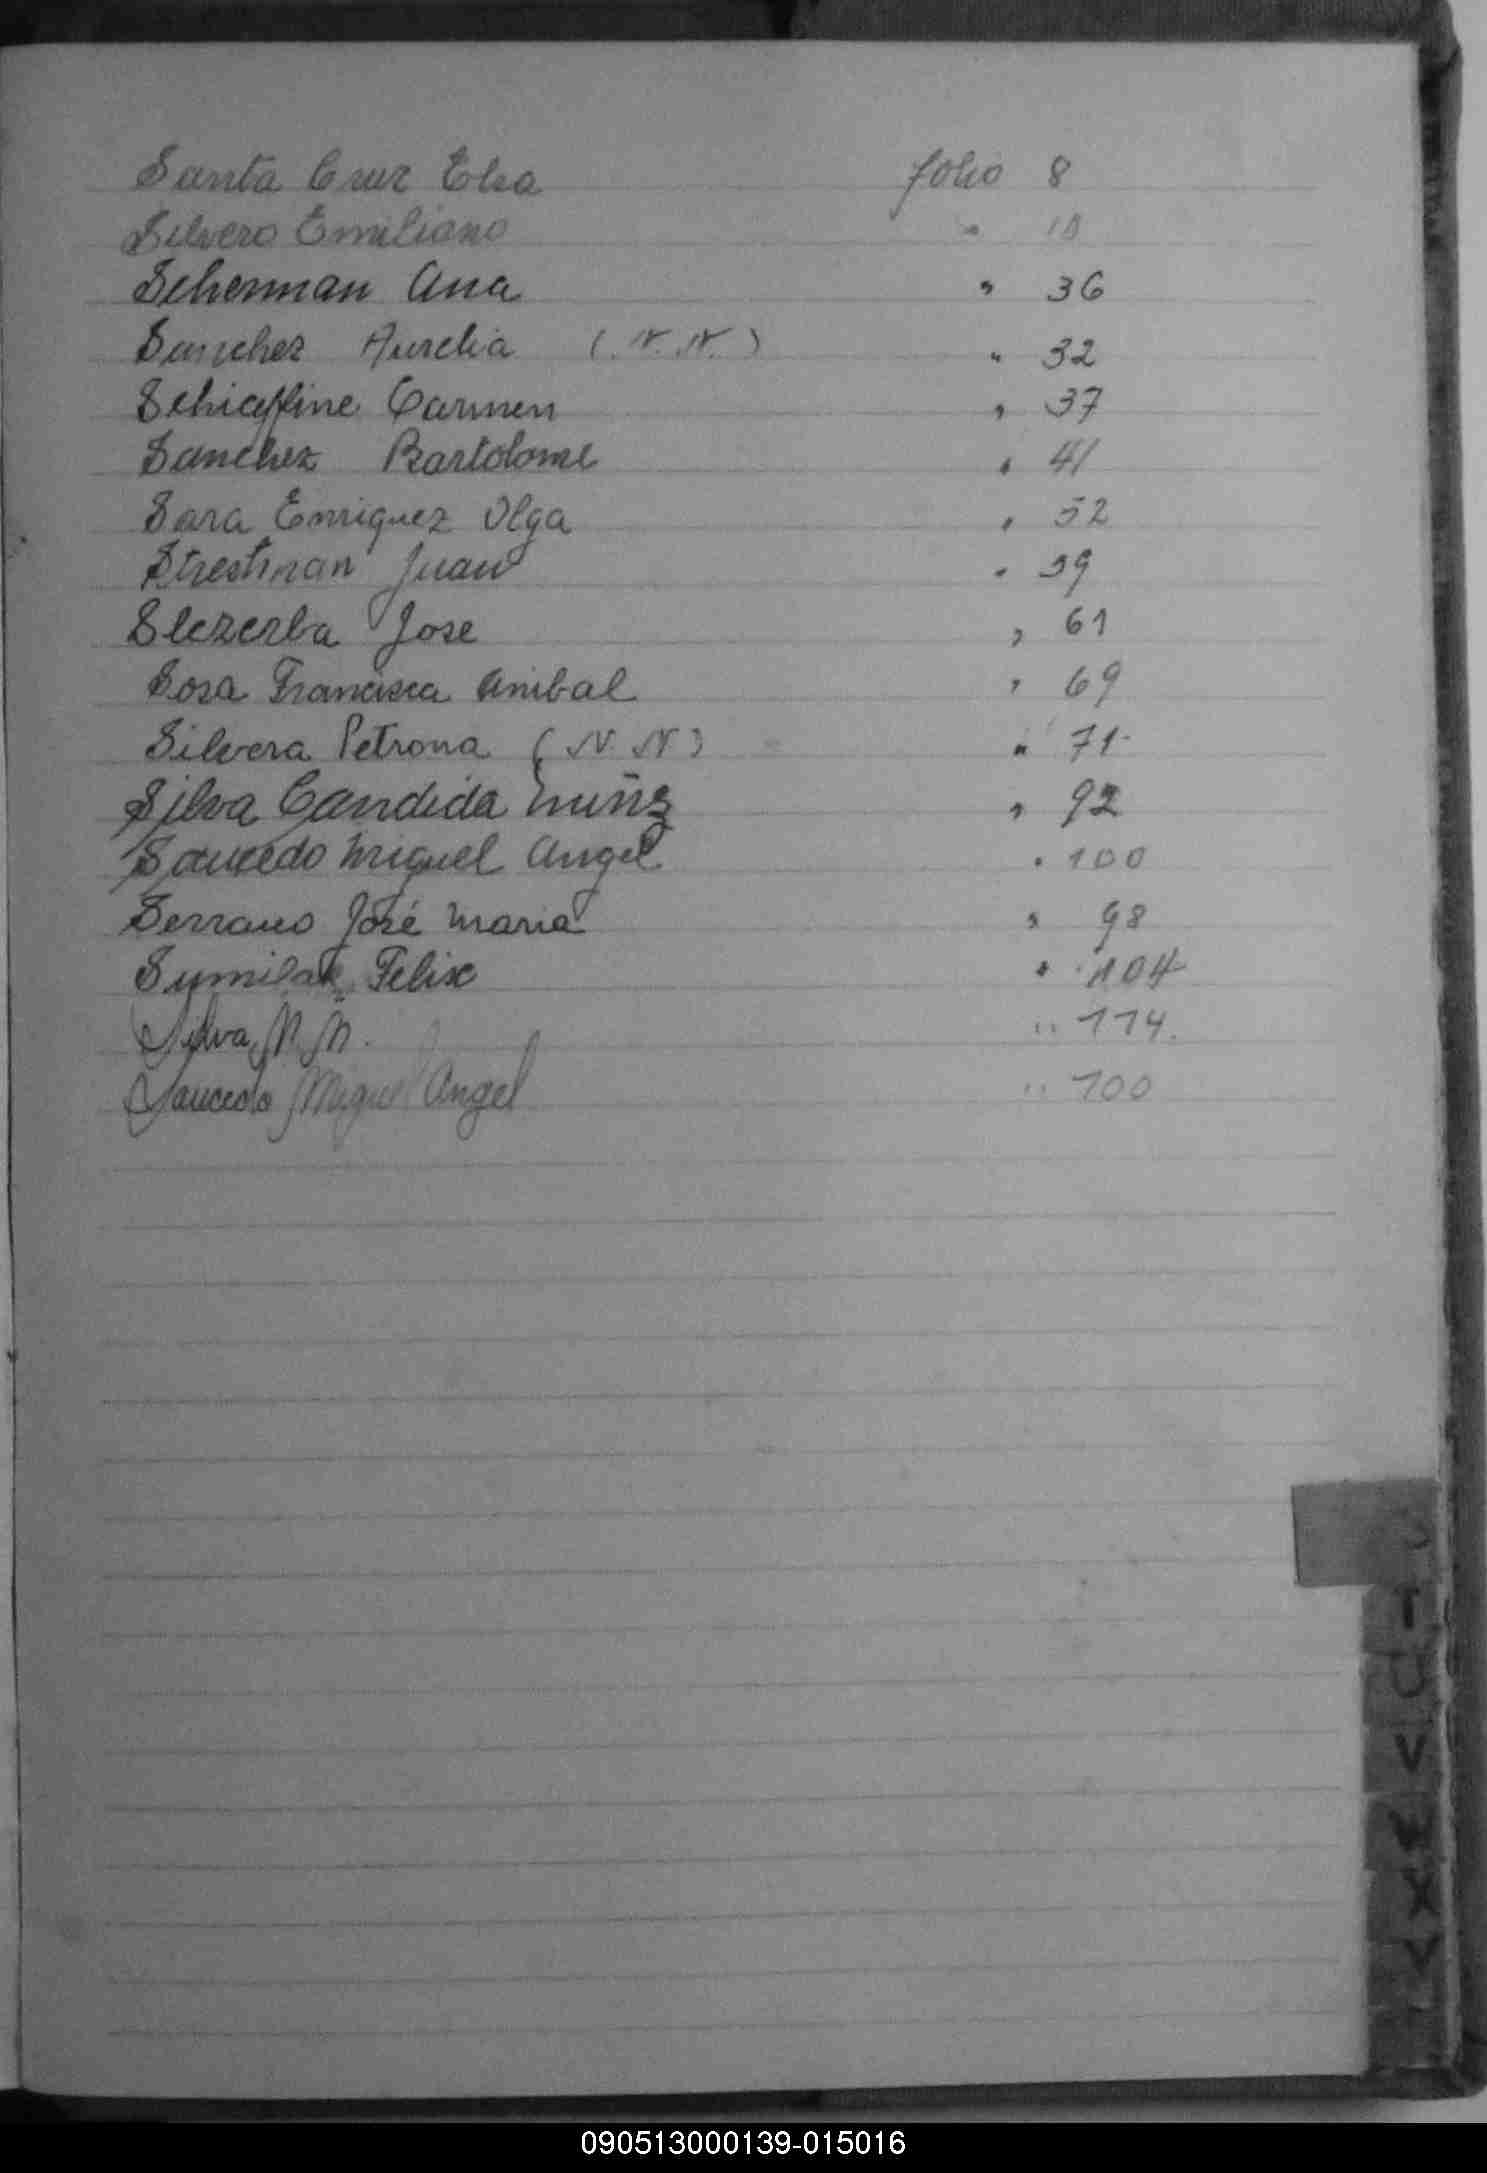 Santa Cruz Elsa folio 8
Silvero Emiliano " 10
Scherman Ana " 36
Sanchez Aurelia (N.N.) " 32
Schiaffine Carmen " 37
Sanchez Bartolome " 41
Sara Enriquez Olga " 52
Juan " 59
Slezerba Jose " 61
Sosa Francisca Anibal " 69
Silvera Petrona (N.N) " 71-
Silva Candida " 92
Saucedo Miguel Angel " 100
Serrano José Maria " 98
Felix " 104
Silva N.N. " 114.
Saucedo Miguel Angel " 100
T
U
V
W
X
Y
090513000139-015016